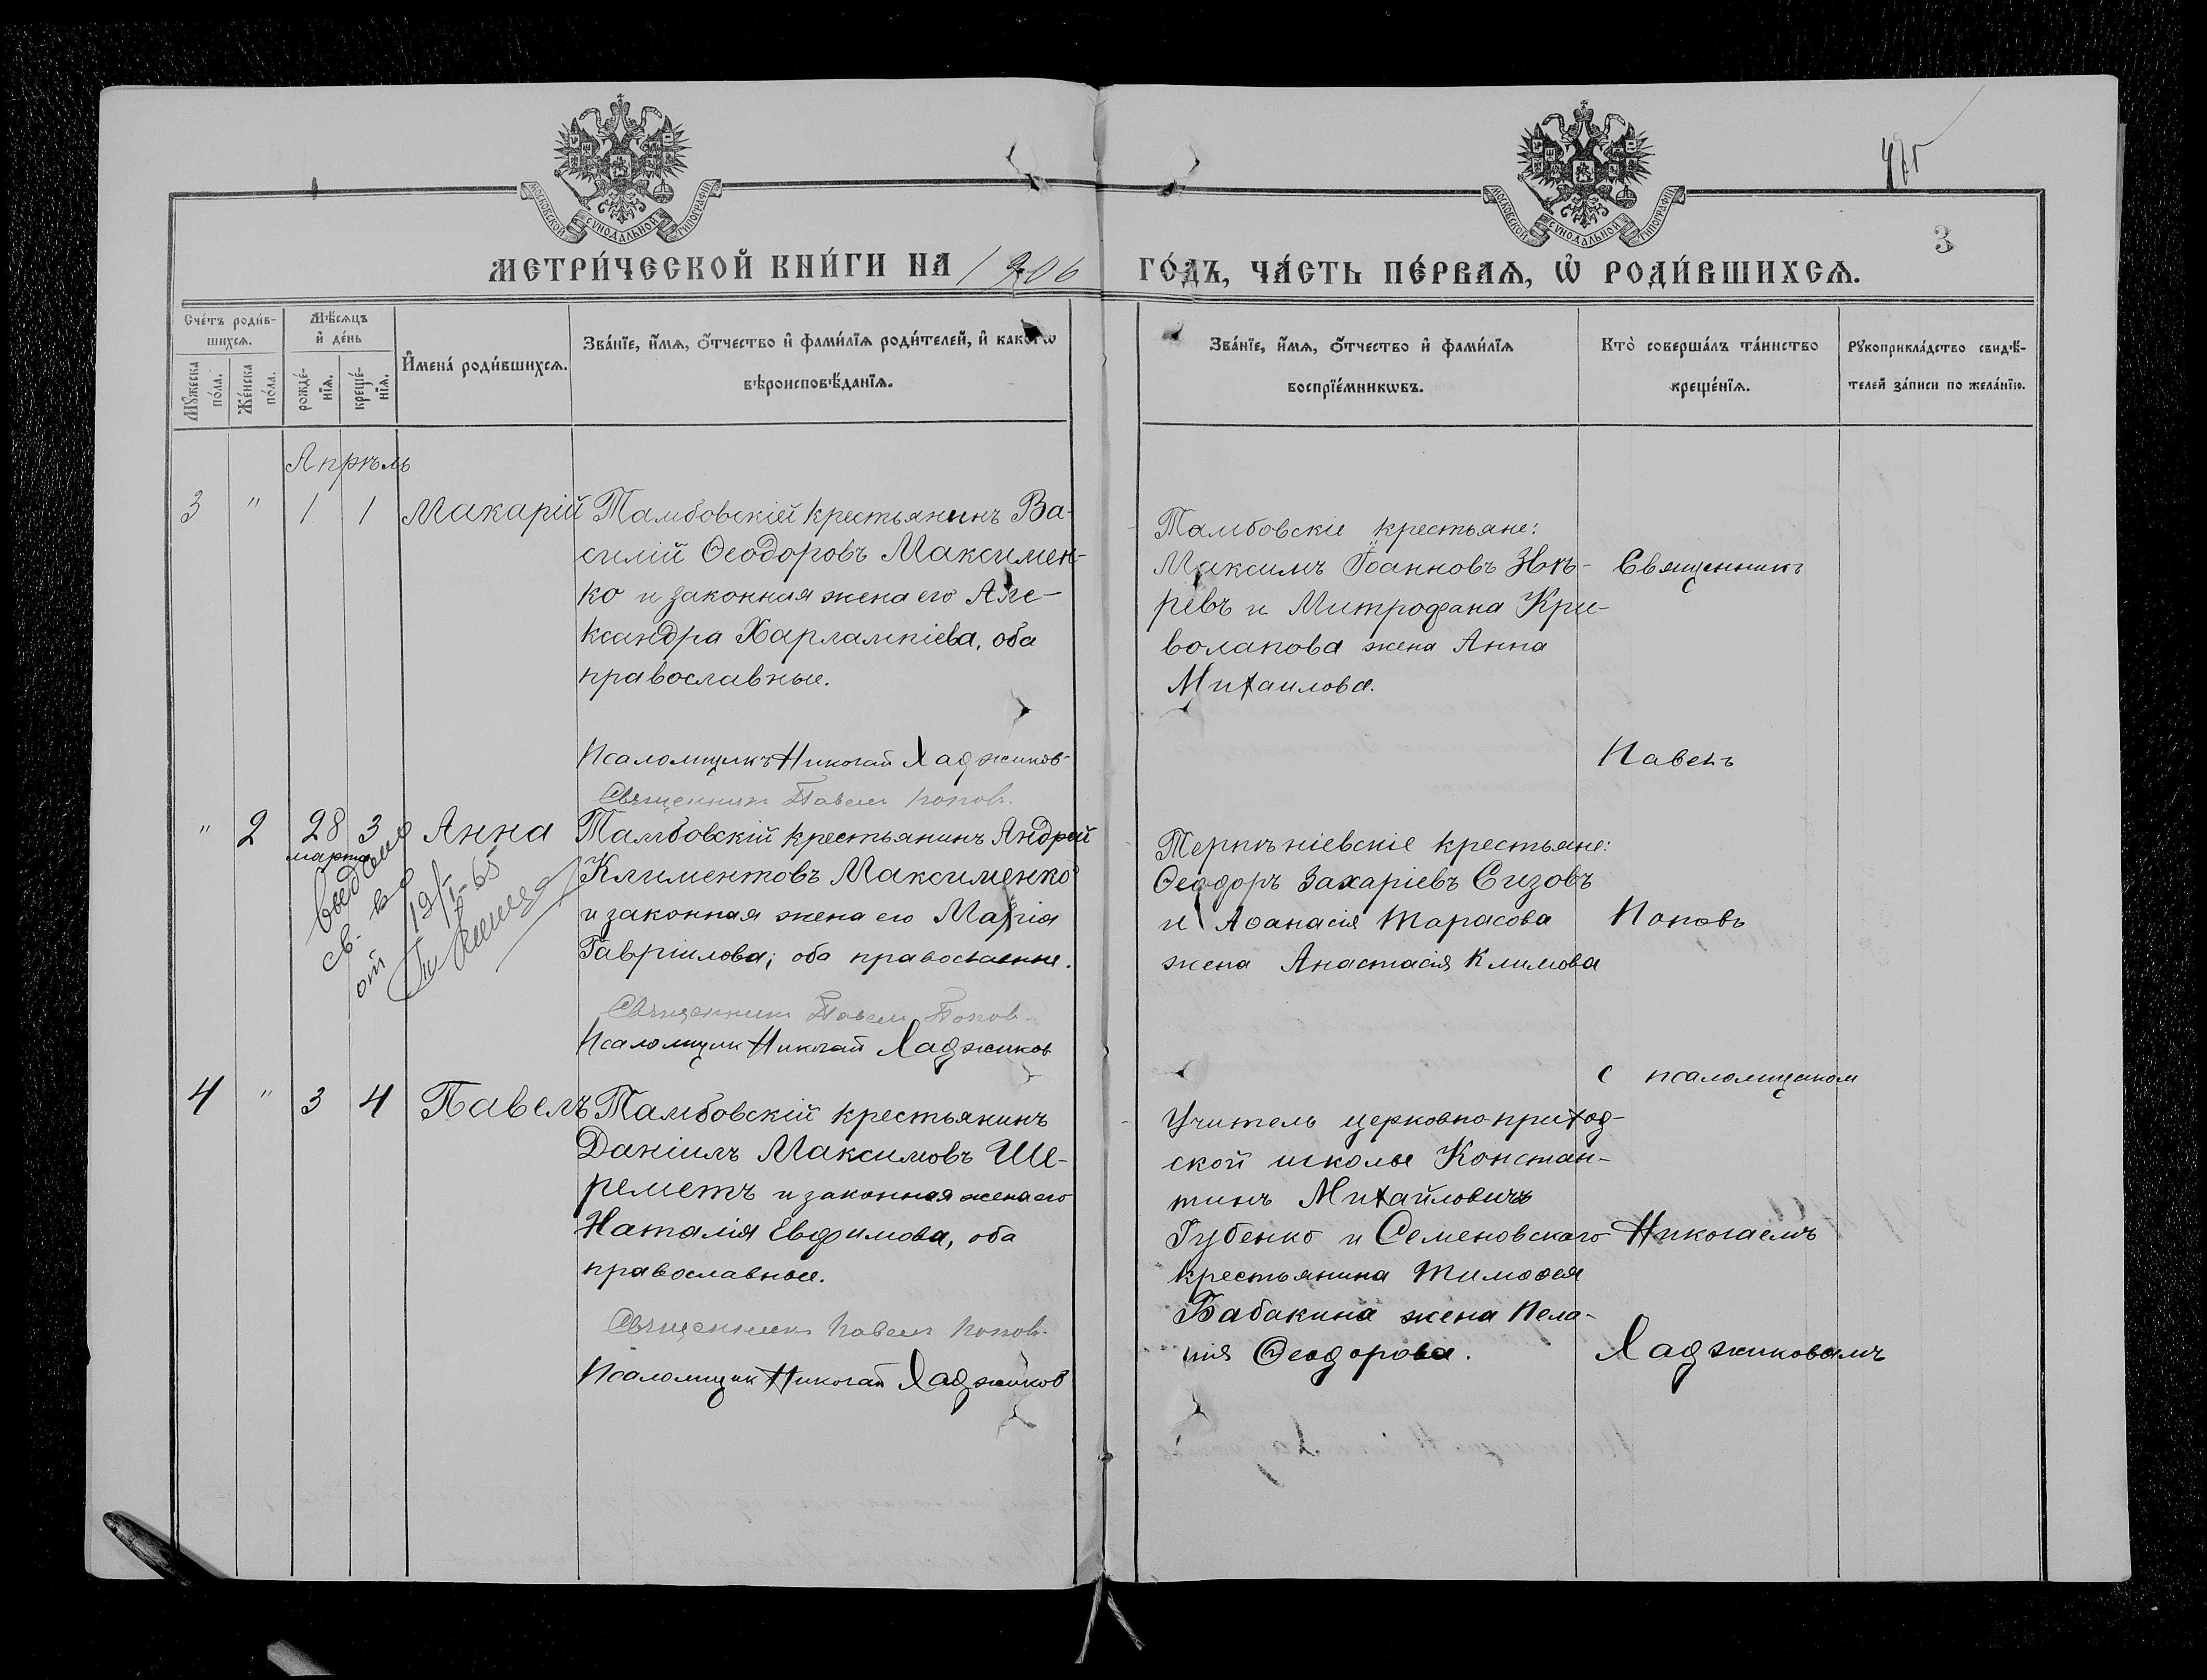 МОСКОВСКОЙ СѴНОДАЛЬНОЙ ТИПОГРАФІИ
МОСКОВСКОЙ СѴНОДАЛЬНОЙ ТИПОГРАФІИ
3
МЕТРИ́ЧЕСКОЙ КНИ́ГИ НА 1906 ГО́ДЪ, ЧА́СТЬ ПЕ́РВАѦ, Ѡ҆ РОДИ́ВШИХСѦ.
Сче́тъ роди́в-
шихсѧ.
Мꙋ́жеска по́ла.
Же́нска по́ла.
Мѣ́сѧцъ
и҆ де́нь
рожде́-
нїѧ.
креще́-
нїѧ.
И҆мена́ роди́вшихсѧ.
Зва́нїе, и҆́мѧ, ѻ҆́тчество и҆ фами́лїѧ роди́телей, и҆ како́гѡ
вѣроисповѣ́данїѧ.
Зва́нїе, и҆́мѧ, ѻ҆́тчество и҆ фами́лїѧ
воспрїе́мникѡвъ.
Кто̀ соверша́лъ та́инство
креще́нїѧ.
Рꙋкоприкла́дство свидѣ́-
телей за́писи по жела́нїю.
Апрѣль
3 " 1 1 Макарій
Тамбовскій крестьянинъ Ва-
силій Ѳеодоровъ Максимен-
ко и законная жена его Але-
ксандра Харлампіева, оба
православные.
Псаломщикъ Николай Хаджинов
Священник Павел Попов.
Тамбовскіе крестьяне:
Максимъ Іоанновъ
и Митрофана Кри-
волапова жена Анна
Михаилова.
Священникъ
Павелъ
" 2 28 3 Анна
марта
19/I-65
Тамбовскій крестьянинъ Андрей
Климентовъ Максименко
и законная жена его Марія
Гавріилова; оба православные.
Священник Павел Попов.
Псаломщик Николай Хаджинов
крестьяне:
Ѳеодоръ Захаріевъ Сизовъ
и Аѳанасія Тарасова
жена Анастасія Климова
Поповъ
4 " 3 4 Павелъ
Тамбовскій крестьянинъ
Даніилъ Максимовъ Ше-
реметъ и законная жена его
Наталія Евфимова, оба
православные.
Священник Павел Попов.
Псаломщик Николай Хаджинов
Учитель церковно-приход-
ской школы Констан-
тинъ Михайловичъ
Губенко и Семеновскаго
крестьянина Тимоѳея
Бабакина жена Пела-
гія Ѳеодорова.
с псаломщиком
Николаемъ
Хаджиновымъ